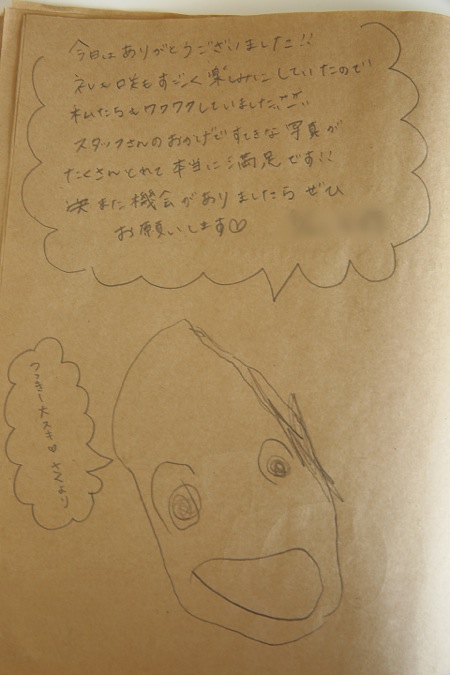 今日はありがとうございました!!
ねいも咲もすごく楽しみにしていたので
私たちもワクワクしていました!!
スタッフさんのおかげですてきな写真が
たくさんとれて本当に満足です!!
また機会がありましたらぜひ
お願いします♡
大スキ♡ さくより